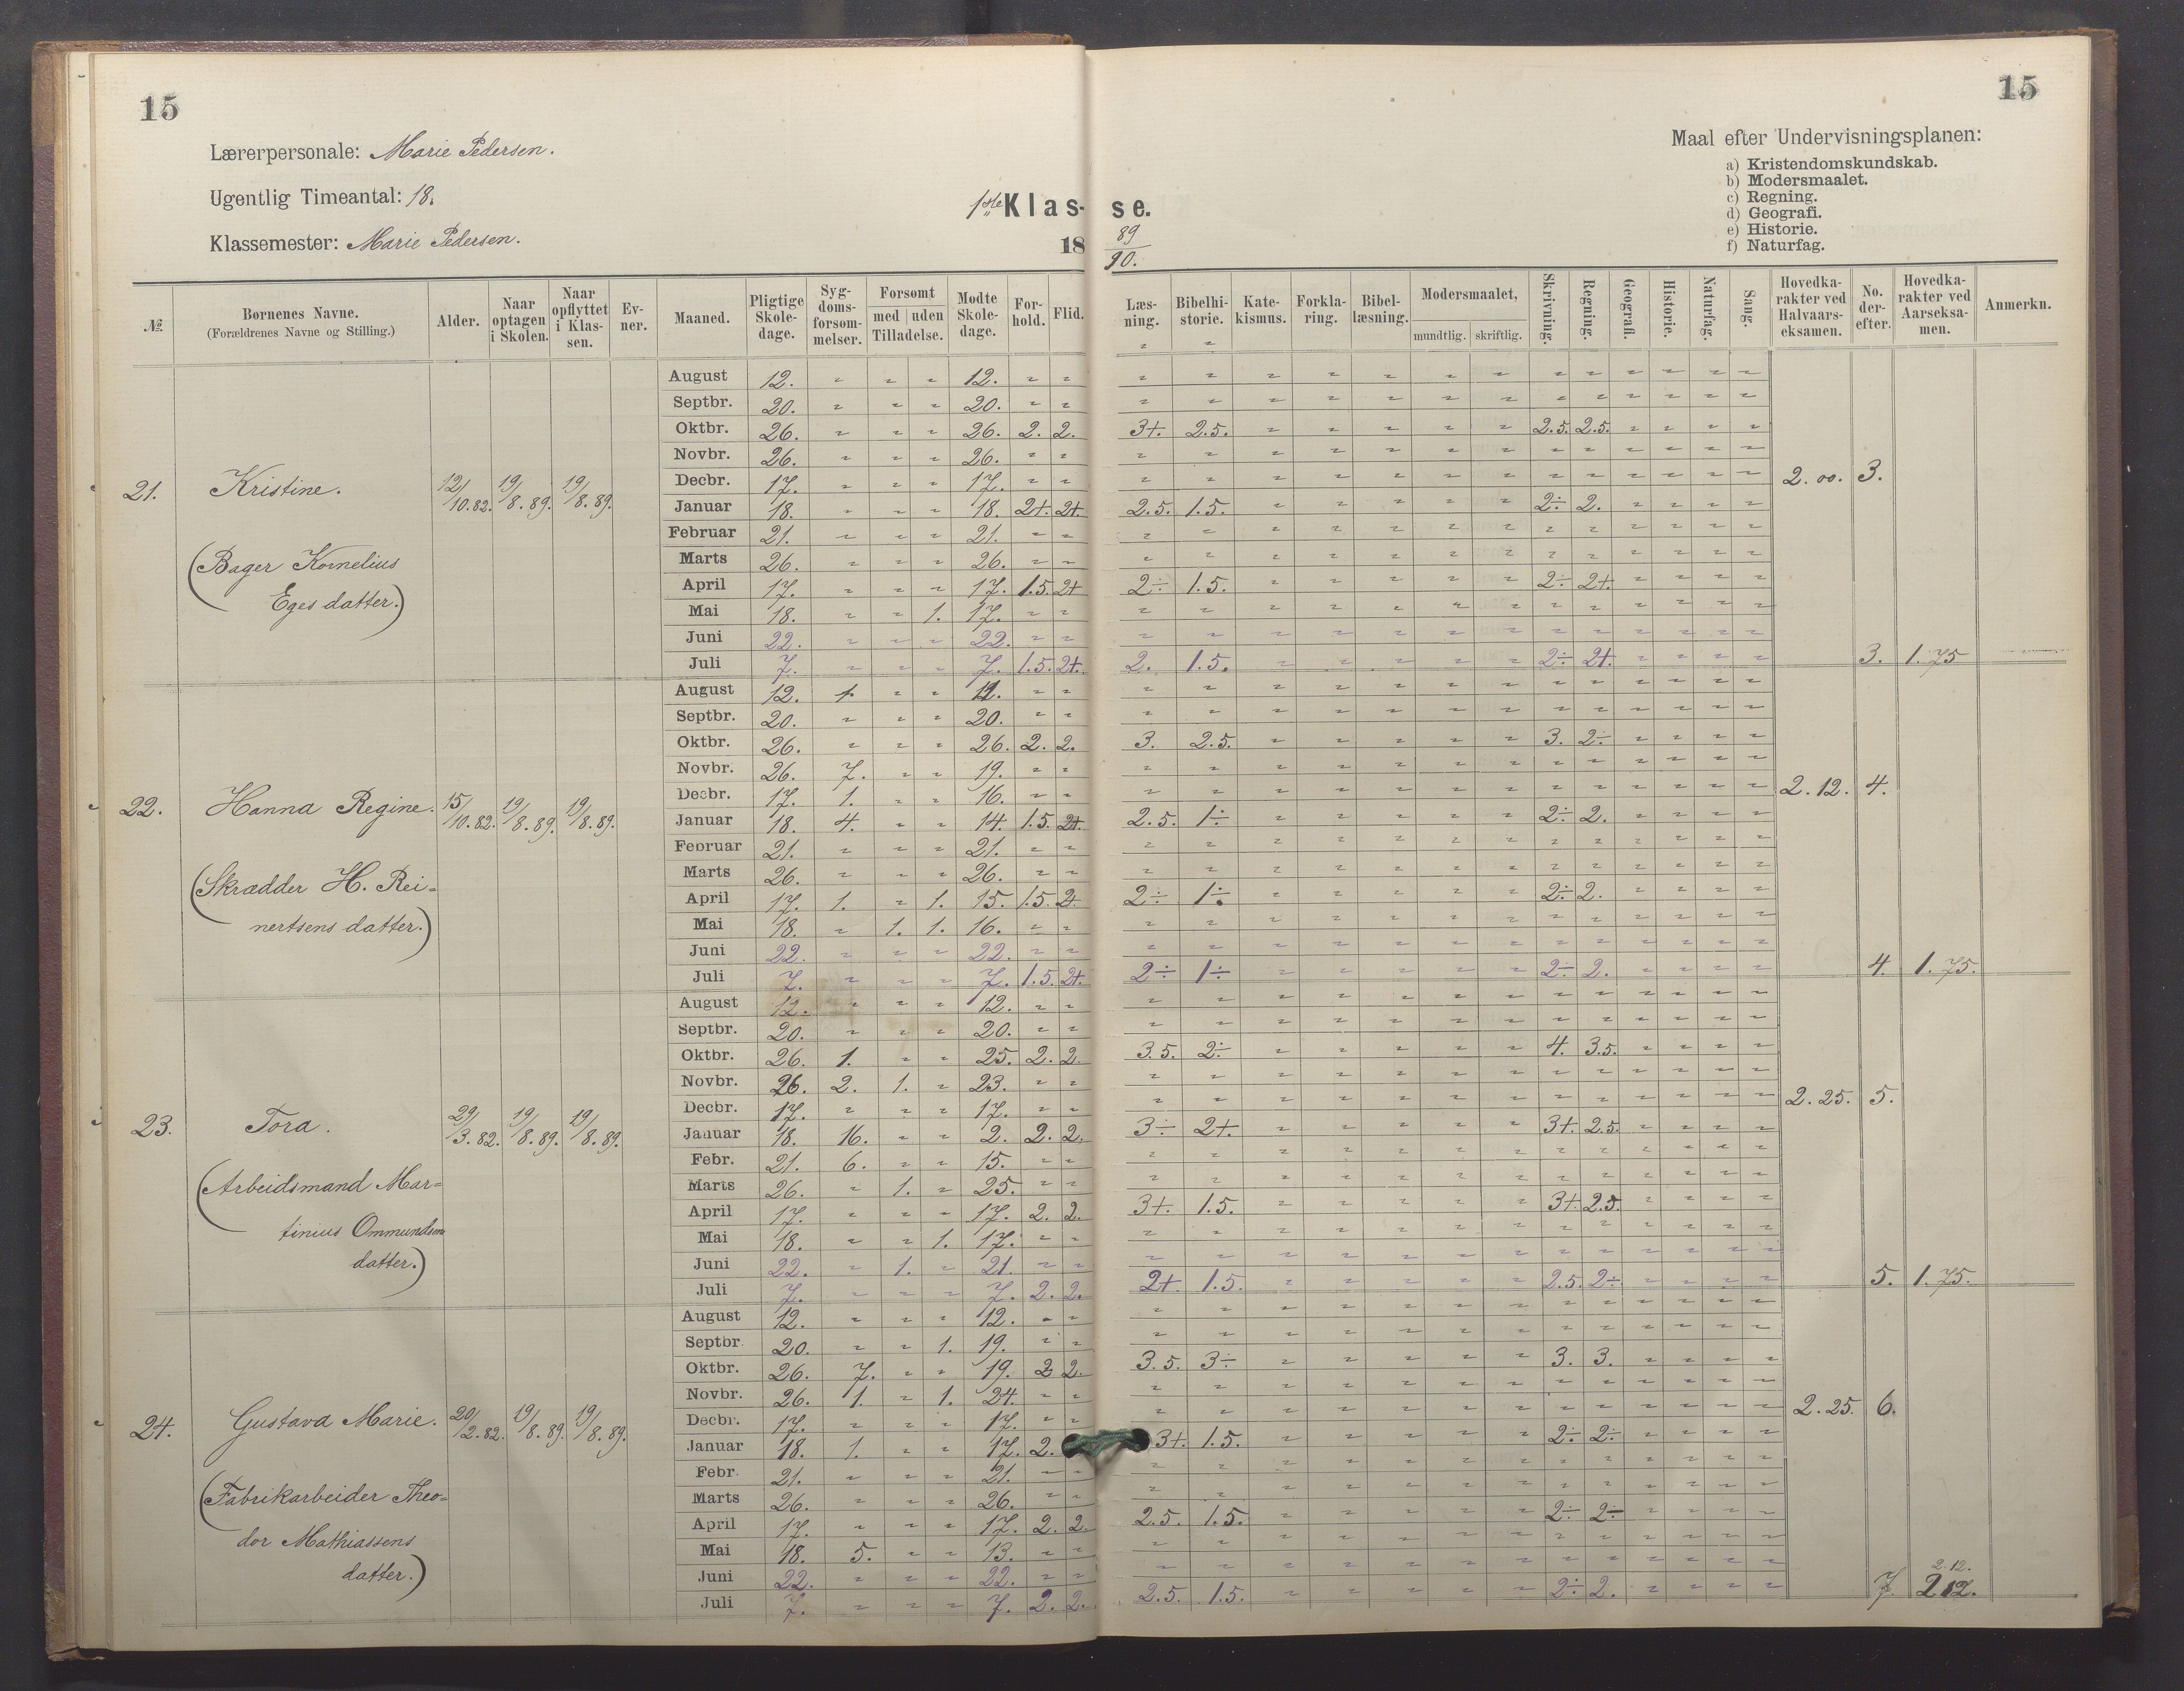 15
15
Lærerpersonale: Marie Pedersen.
Ugentlig Timeantal: 18.
Klassemester: Marie Pedersen.
1ste Klasse.
18 89/90.
Maal efter Undervisningsplanen:
a) Kristendomskundskab.
b) Modersmaalet.
c) Regning.
d) Geografi.
e) Historie.
f) Naturfag.
№ | Børnenes Navne. (Forældrenes Navne og Stilling.) | Alder. | Naar optagen i Skolen. | Naar opflyttet i Klassen. | Evner. | Maaned. | Pligtige Skoledage. | Sygdomsforsømmelser. | Forsømt med uden Tilladelse. | Mødte Skoledage. | Forhold. | Flid. | Læsning. | Bibelhistorie. | Katekismus. | Forklaring. | Bibellæsning. | Modersmaalet, mundtlig. skriftlig. | Skrivning. | Regning. | Geografi. | Historie. | Naturfag. | Sang. | Hovedkarakter ved Halvaarseksamen. | No. derefter. | Hovedkarakter ved Aarseksamen. | Anmerkn.
21. Kristine. 12/10.82. 19/8.89. 19/8.89.
(Bager Kornelius
Eges datter.)
August 12. 12.
Septbr. 20. 20.
Oktbr. 26. 26. 2. 2. 3+. 2.5. 2.5. 2.5.
Novbr. 26. 26.
Decbr. 17. 17. 2.00. 3.
Januar 18. 18. 2+. 2+. 2.5. 1.5. 2÷ 2.
Februar 21. 21.
Marts 26. 26.
April 17. 17. 1.5. 2+ 2÷ 1.5. 2÷ 2+.
Mai 18. 1. 17.
Juni 22. 22.
Juli 7. 7. 1.5. 2+. 2. 1.5. 2÷ 2+. 3. 1.75
22. Hanna Regine. 15/10.82. 19/8.89. 19/8.89.
(Skrædder H. Rei=
nertsens datter.)
August 12. 1. 11.
Septbr. 20. 20.
Oktbr. 26. 26. 2. 2. 3. 2.5. 3. 2÷
Novbr. 26. 7. 19.
Decbr. 17. 1. 16. 2.12. 4.
Januar 18. 4. 14. 1.5. 2+. 2.5. 1÷ 2÷ 2.
Februar 21. 21.
Marts 26. 26.
April 17. 1. 1. 15. 1.5. 2+. 2÷ 1÷ 2÷ 2.
Mai 18. 1. 1. 16.
Juni 22. 22.
Juli 7. 7. 1.5. 2+. 2÷ 1÷ 2÷ 2. 4. 1.75.
23. Tora. 29/3.82. 19/8.89. 19/8.89.
(Arbeidsmand Mar=
tinius Ommundsens
datter.)
August 12. 12.
Septbr. 20. 20.
Oktbr. 26. 1. 25. 2. 2. 3.5. 2÷ 4. 3.5.
Novbr. 26. 2. 1. 23.
Decbr. 17. 17. 2.25. 5.
Januar 18. 16. 2. 2. 2. 3÷ 2+. 3+. 2.5.
Febr. 21. 6. 15.
Marts 26. 1. 25.
April 17. 17. 2. 2. 3+. 1.5. 3+. 2.5.
Mai 18. 1. 17.
Juni 22. 1. 21.
Juli 7. 7. 2. 2. 2+. 1.5. 2.5. 2÷ 5. 1.75.
24. Gustava Marie. 20/2.82. 19/8.89. 19/8.89.
(Fabrikarbeider Theo=
dor Mathiassens
datter.)
August 12. 12.
Septbr. 20. 1. 19.
Oktbr. 26. 7. 19. 2 2. 3.5. 3÷ 3. 3.
Novbr. 26. 1. 1. 24.
Decbr. 17. 17. 2.25. 6.
Januar 18. 1. 17. 2. 3+. 1.5. 2÷ 2÷
Febr. 21. 21.
Marts 26. 26.
April 17. 17. 2. 2. 2.5. 1.5. 2÷ 2÷
Mai 18. 5. 13.
Juni 22. 22. 2.12.
Juli 7. 7. 2. 2. 2.5. 1.5. 2÷ 2. 7. 2.12.